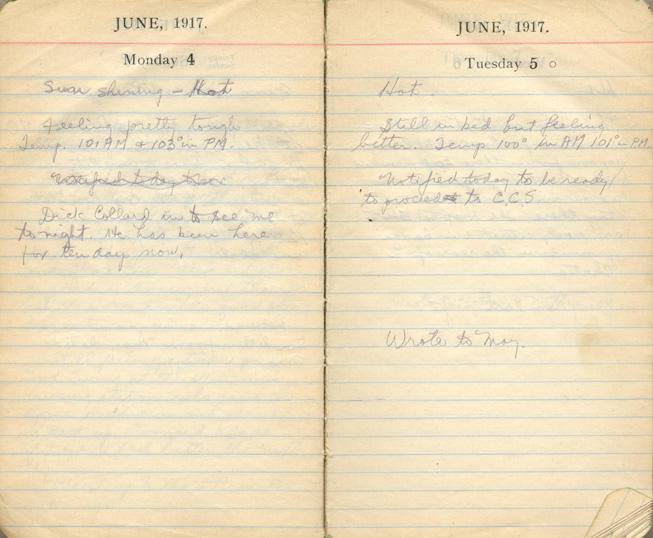 JUNE, 1917.
Monday 4
Sun shining - Hot
Feeling pretty tough
Temp. 101 AM & 103° in PM.
Notified today to be
Dick Collard in to see me
to-night. He has been here
for ten day now.
JUNE, 1917.
Tuesday 5
Hot.
Still in bed but feeling
better. Temp 100° in AM 101° in PM.
Notified today to be ready
to proceed to C.C.S
Wrote to May.